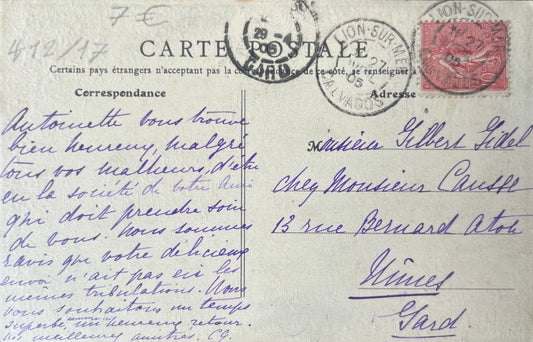 7 €
412/17
CARTE POSTALE
Certains pays étrangers n'acceptent pas la correspondance de ce côté, se renseigner à
Correspondance
Adresse
LION-SUR-MER
27
05
CALVADOS
LION-SUR-MER
27
05
29 -4
05
GARD
Antoinette vous trouve
bien heureux, malgré
tous vos malheurs, d'être
en la société de votre ami
qui doit prendre soin
de vous. Nous sommes
ravis que votre délicieux
envoi n'ait pas eu les
mêmes tribulations. Nous
vous souhaitons un temps
superbe, un heureux retour.
meilleures amitiés. CG.
Monsieur Gilbert Gidel
chez Monsieur Causse
13 rue Bernard Aton
Nîmes
Gard.